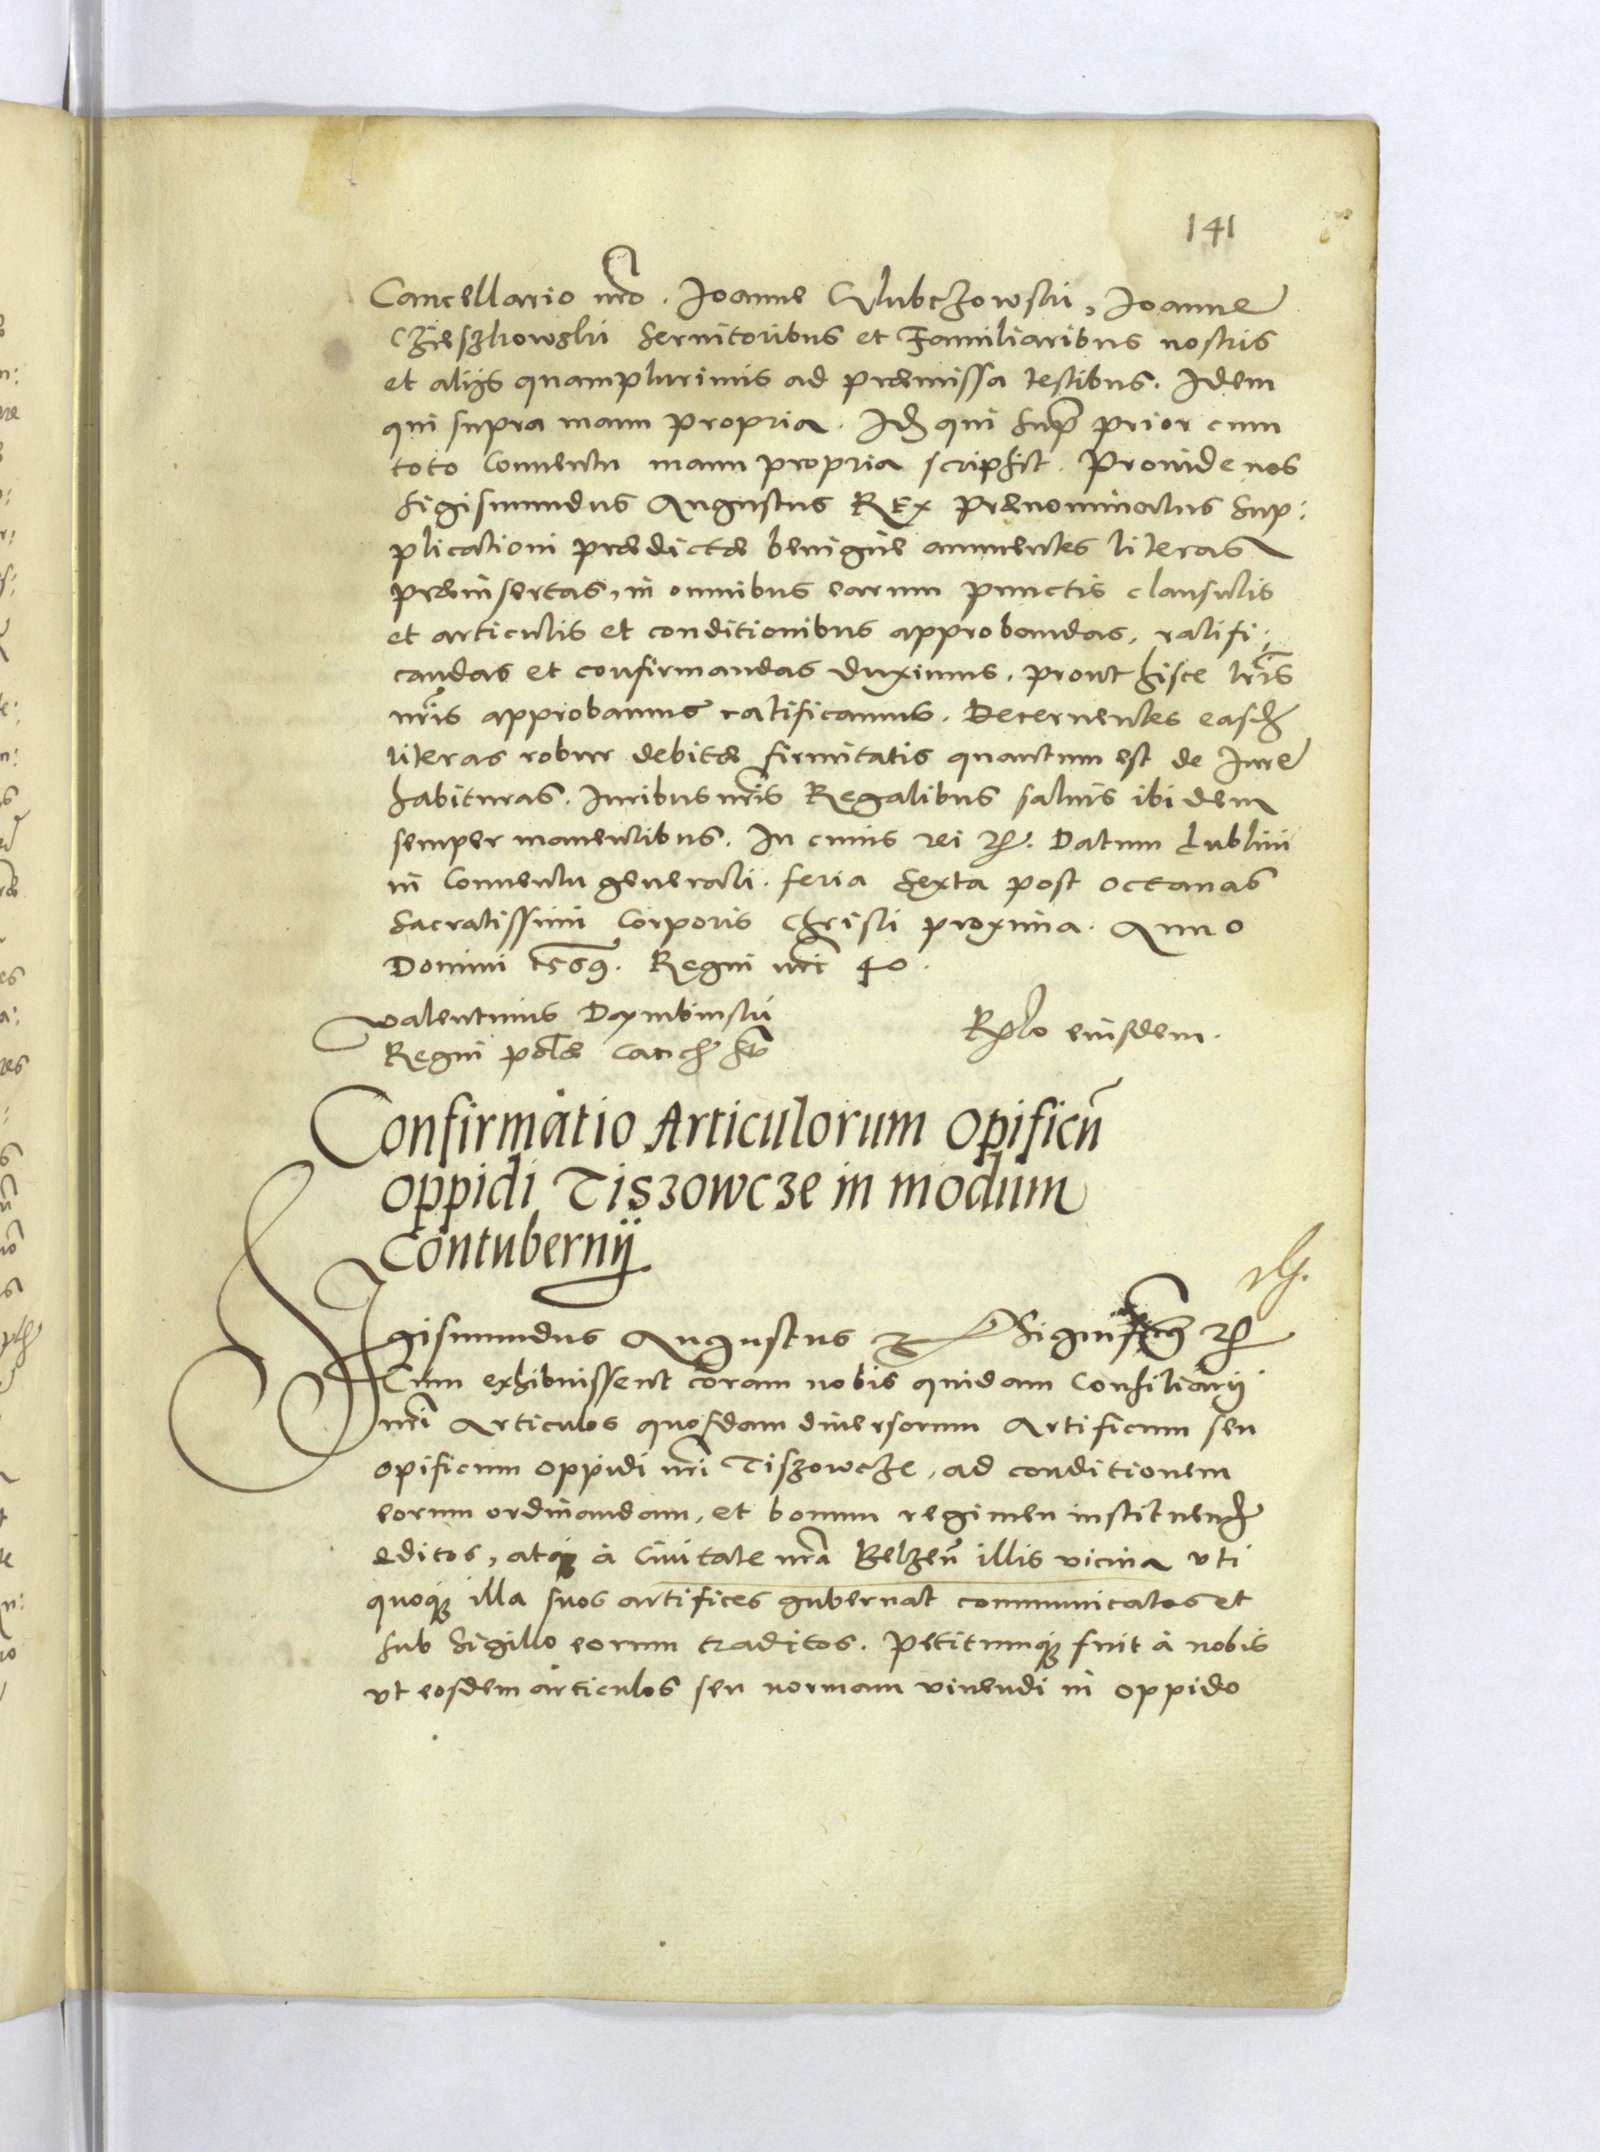 141
Cancellario nrõ. Joanne Clubczowski, Joanne
Czieszkowski Seruitoribus et Familiaribus nostris
et alijs quamplurimis ad præmissa testibus. Idem
qui supra manu propria. Idẽ qui supᷓ prior cum
toto Conuentu manu propria scripsit. Prouide nos
Sigismundus Augustus REx Prænominatus Sup:
plicationi prædictæ benigne annuentes literas
præinsertas, in omnibus earum punctis clausulis
et articulis et conditionibus approbandas, ratifi:
candas et confirmandas duximus. prout hisce lrĩs
nrĩs approbamus ratificamus. Decernentes easdẽ
literas robur debitæ firmitatis quantum est de Iure
habituras. Iuribus nrĩs Regalibus saluis ibidem
semper manentibus. In cuius rei ꝛc. Datum Lublini
in Conuentu generali. feria Sexta post octauas
Sacratissimi Corporis Christi proxima. Anno
Domini 1569. Regni nrĩ 40.
Valentinus Dąmbinski
Regni polæ Cancẽ sst
Relõ eiusdem.
Confirmatio Articulorum Opificũ
Oppidi Tiszowcze in modum
Contubernij
Sigismundus Augustus ꝛc Significamus ꝛc
Cum exhibuissent coram nobis quidam Consiliarij
nrĩ Articulos quosdam diuersorum Artificum seu
opificum oppidi nrĩ Tiszowcze, ad conditionem
eorum ordinandam, et bonum regimen instituendẽ
editos, atq̃ à Ciuitate nrã Belzeñ illis vicina vti
quoq̃ illa suos artifices gubernat communicatos et
sub Sigillo eorum traditos. Petitumq̃ fuit à nobis
vt eosdem articulos seu normam viuendi in oppido